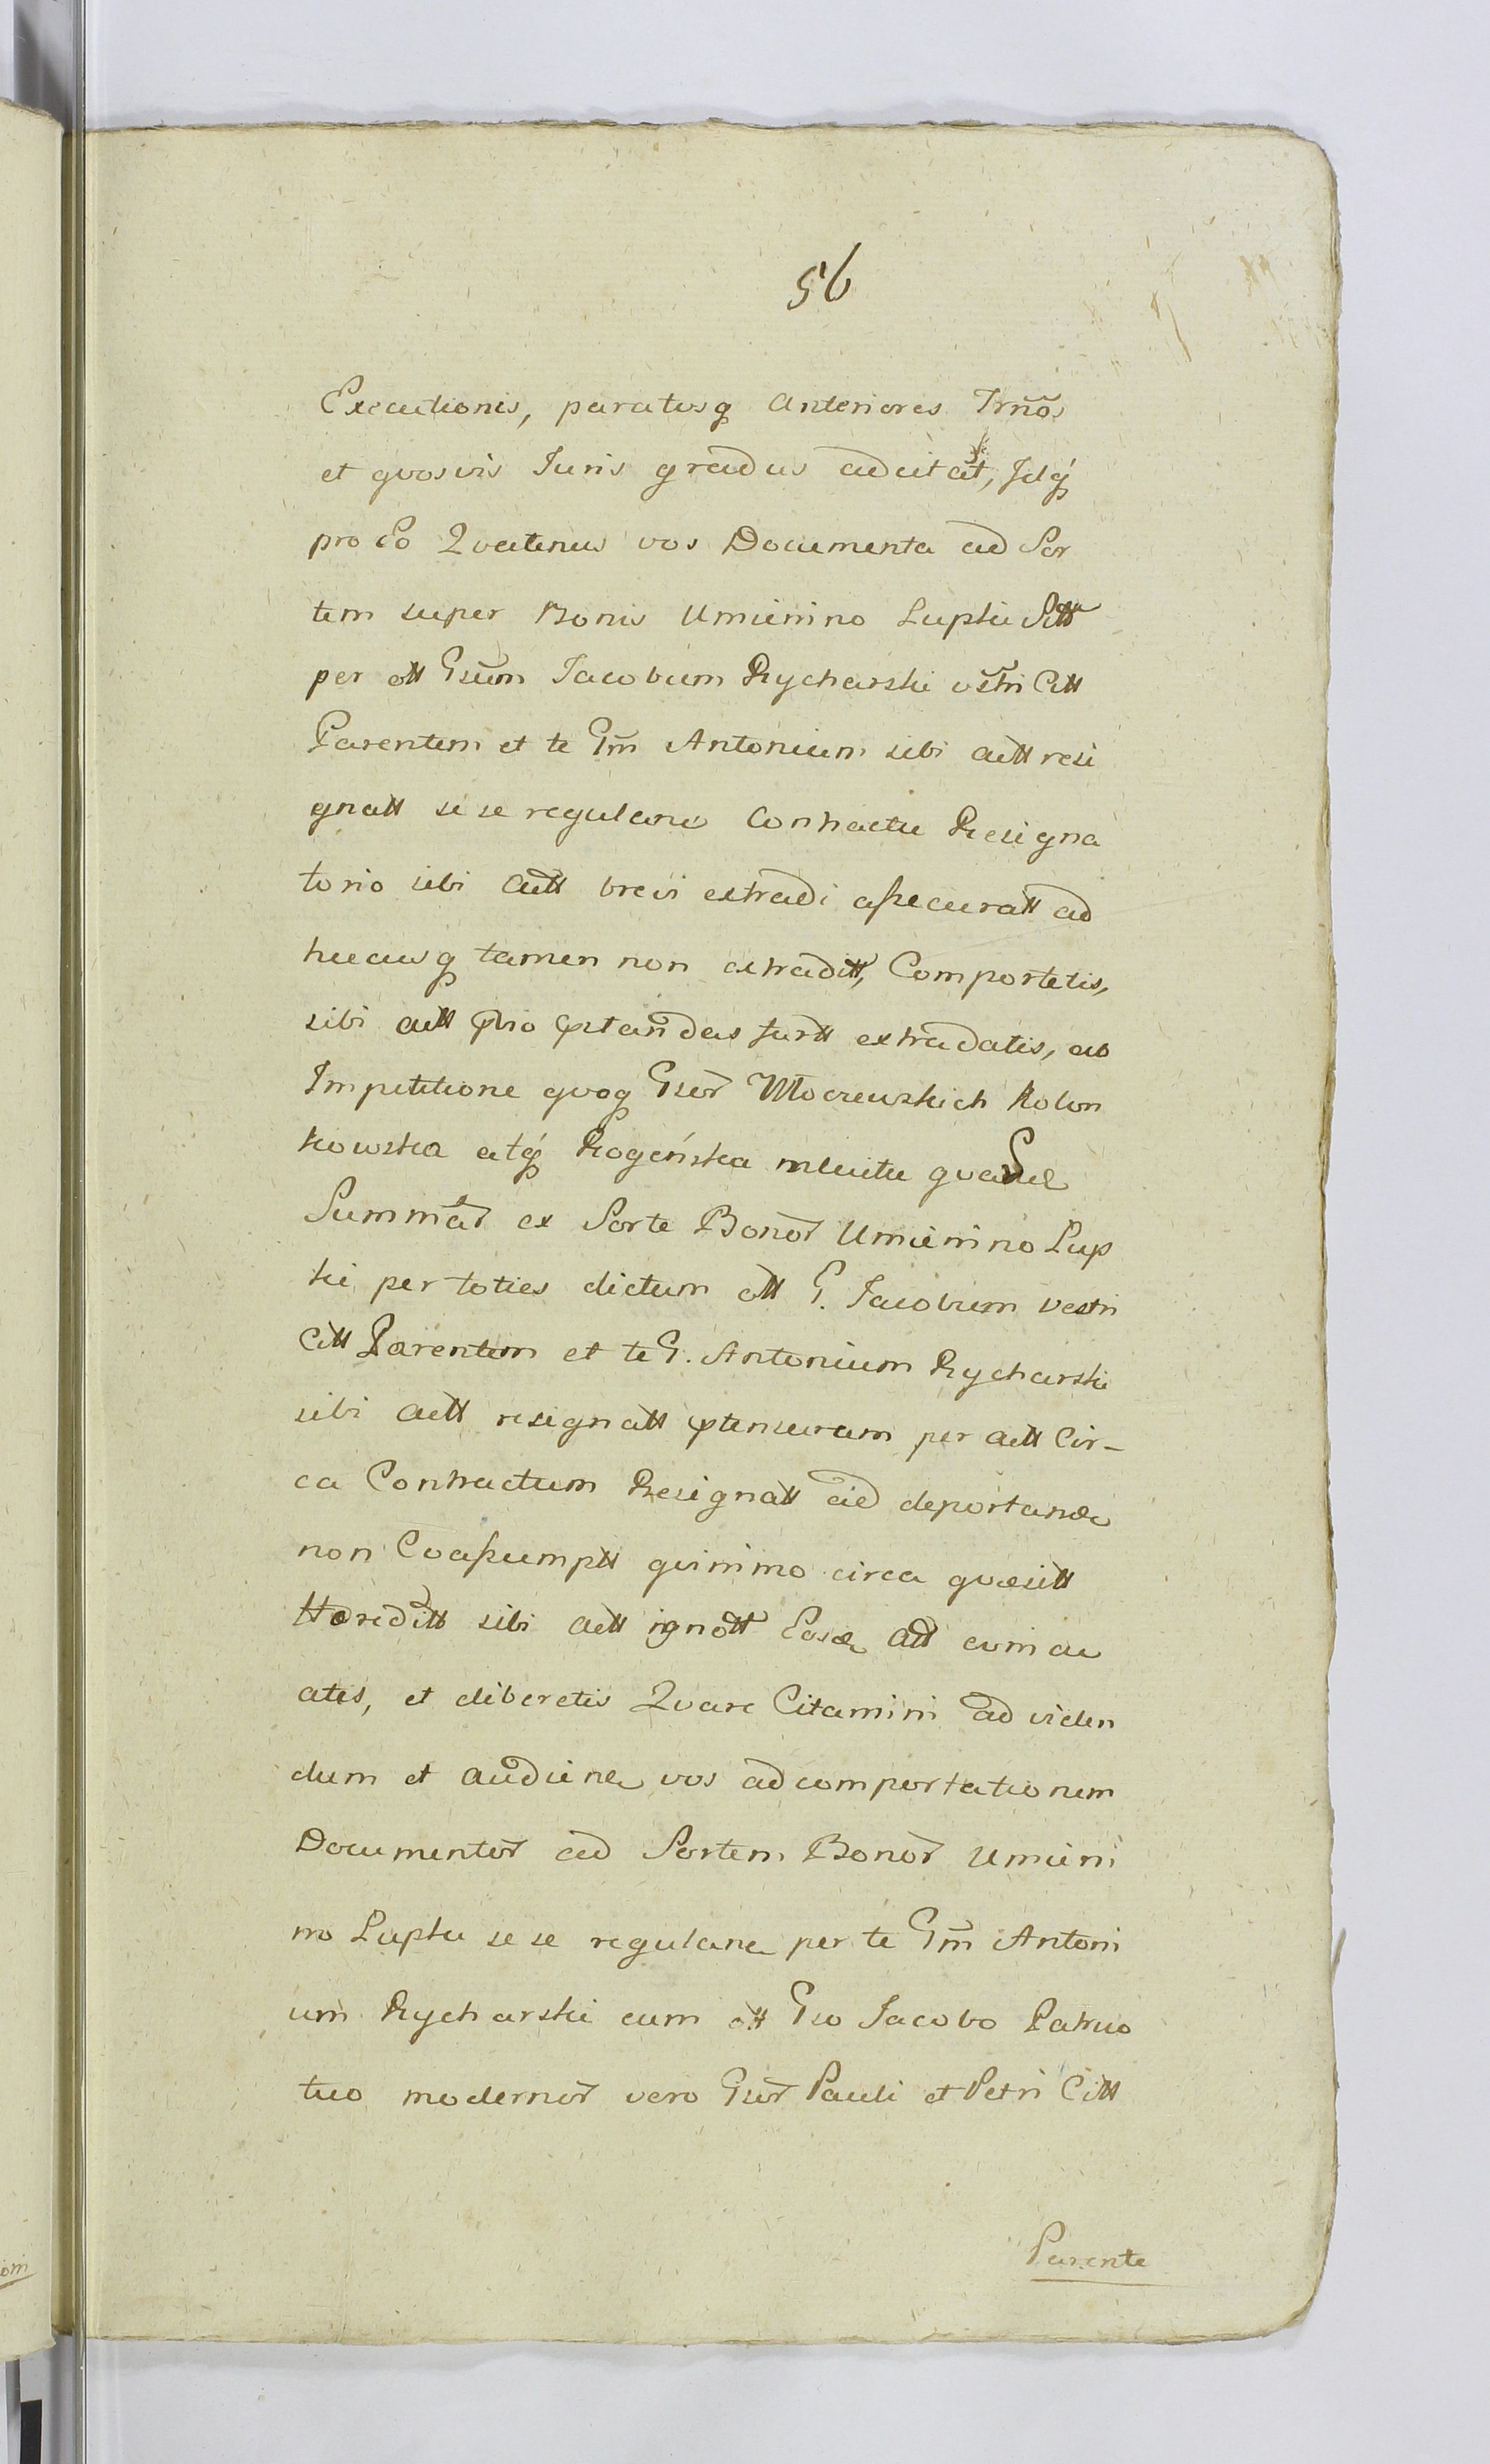 56
Executionis, paratusq Anteriores Trños
et qvosvis Juris gradus adcitat, Idq́
pro Eo Qvatenus vos Documenta ad Sor
tem super Bonis Umienino Łupki Sitt
per ott Gsum Jacobum Rycharski vstri Citt
Parentem et te Gm̃ Antonium sibi actt resi
gnatt se se regulanẽ Contractu Resigna
torio sibi Actt brevi extradi assecuratt ad
hucusq tamen non extraditt, Comportetis,
sibi actt extradatis, ab
Impetitione qvoq Gsor Mocrewskich Kolon
kowska atq́ Rogeńska
Summar ex Sorte Bonor Umienino Łup
ki per toties dictum ott G. Jacobum vestri
Citt Parentem et te G. Antonium Rycharski
sibi actt resignatt ptensuram per actt Cir-
ca Contractum Resignatt ad deportanda
non Coassumptt qvinimo circa qvæsitt
Hæreditt sibi actt ignott Easdẽ Att evincu
atis, et liberetis Qvare Citamini ad viden
dum et audiend vos ad comportationem
Documentor ad Sortem Bonor Umieni
no Łupki se se regulanẽ per te Gm̃ Antoni
um Rycharski cum ott Gso Jacobo Patruo
tuo modernor vero Gsor Pauli et Petri Citt
Parente